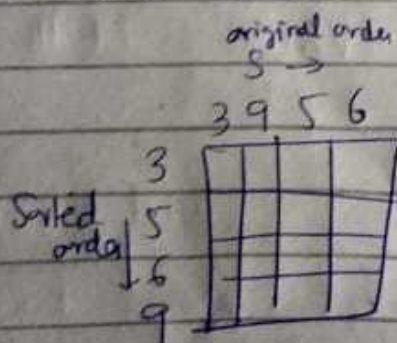 original order
S →
3 9 5 6
3
Sorted
5
order ↓
6
9